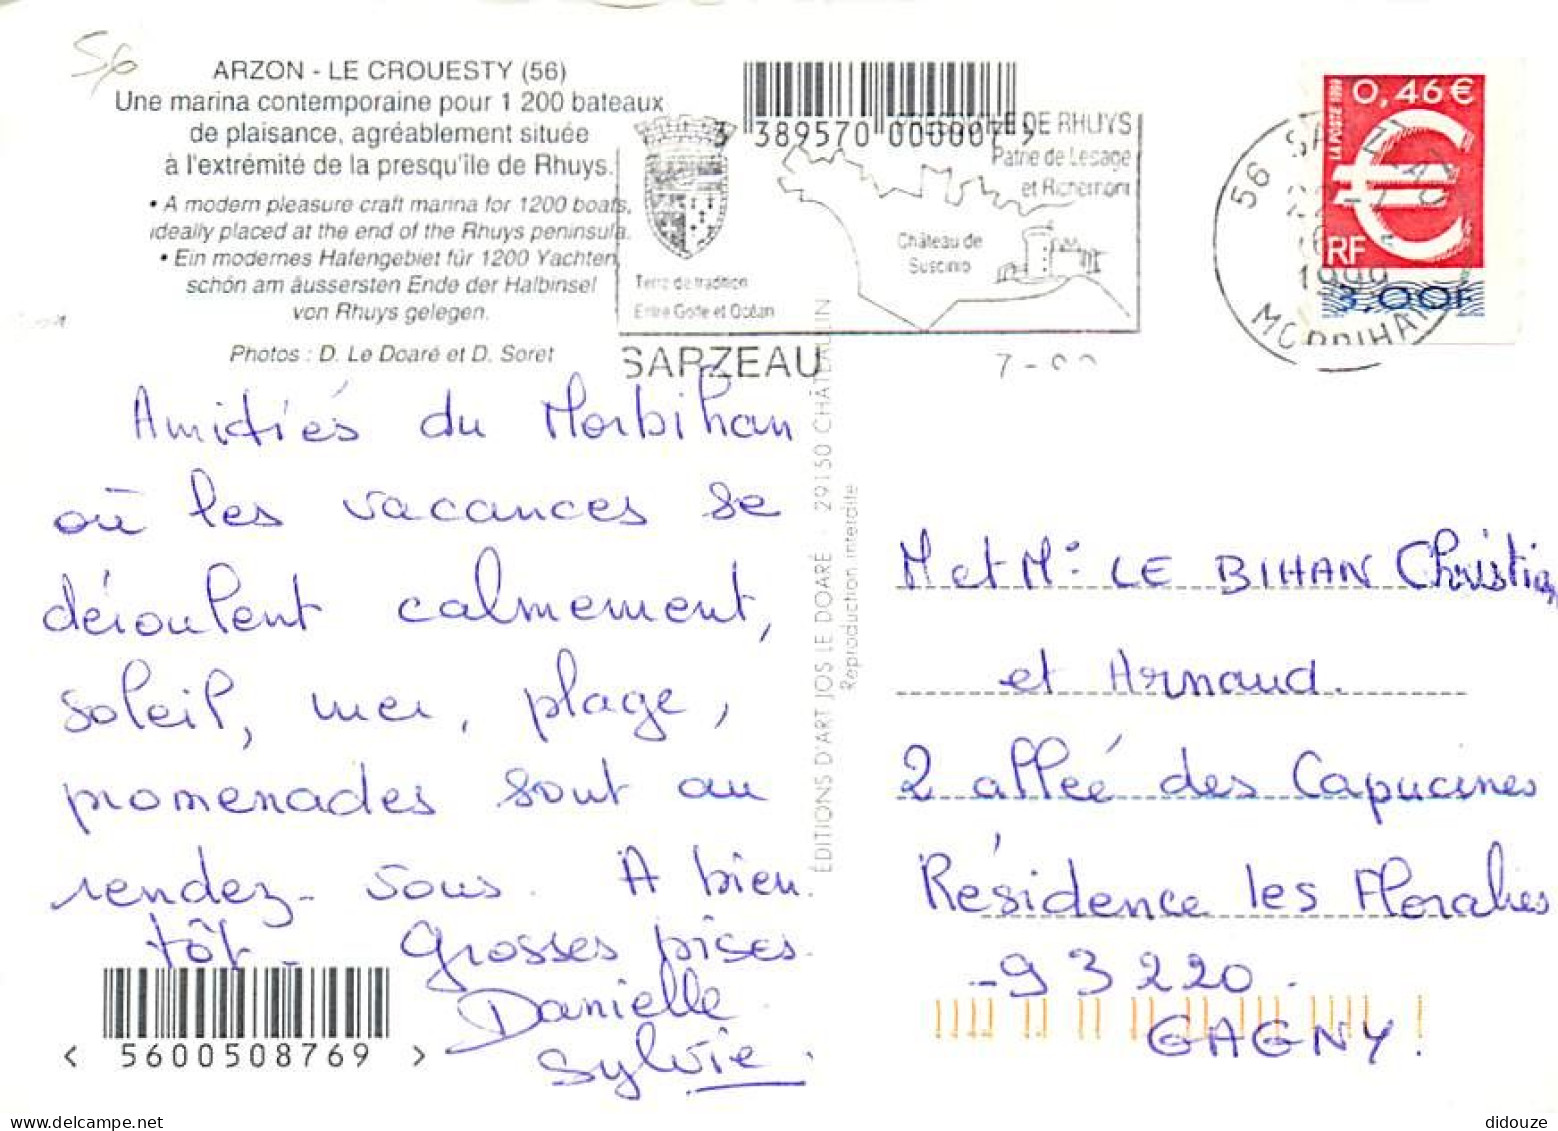 56
ARZON - LE CROUESTY (56)
Une marina contemporaine pour 1 200 bateaux
de plaisance, agréablement située
à l'extrémité de la presqu'île de Rhuys.
• A modern pleasure craft marina for 1200 boats,
ideally placed at the end of the Rhuys peninsula.
• Ein modernes Hafengebiet für 1200 Yachten
schön am äussersten Ende der Halbinsel
von Rhuys gelegen.
Photos : D. Le Doaré et D. Soret
3 389570 000007
DE RHUYS
Patrie de Lesage
et Richemont
Château de
Suscinio
Terre de tradition
Entre Golfe et Océan
SARZEAU
56 SARZEAU
1999
MORBIHAN
LA POSTE 1999
0,46 €
RF
3,00F
Amitiés du Morbihan
où les vacances se
déroulent calmement,
soleil, mer, plage,
promenades sont au
rendez-vous. A bien
tôt. Grosses bises.
Danielle
Sylvie.
ÉDITIONS D'ART JOS LE DOARÉ - 29150 CHÂTEAULIN
Reproduction interdite
M et Me LE BIHAN Christian
et Arnaud.
2 allée des Capucines
Résidence les Floralies
-93220.
GAGNY.
< 5600508769 >
didouze